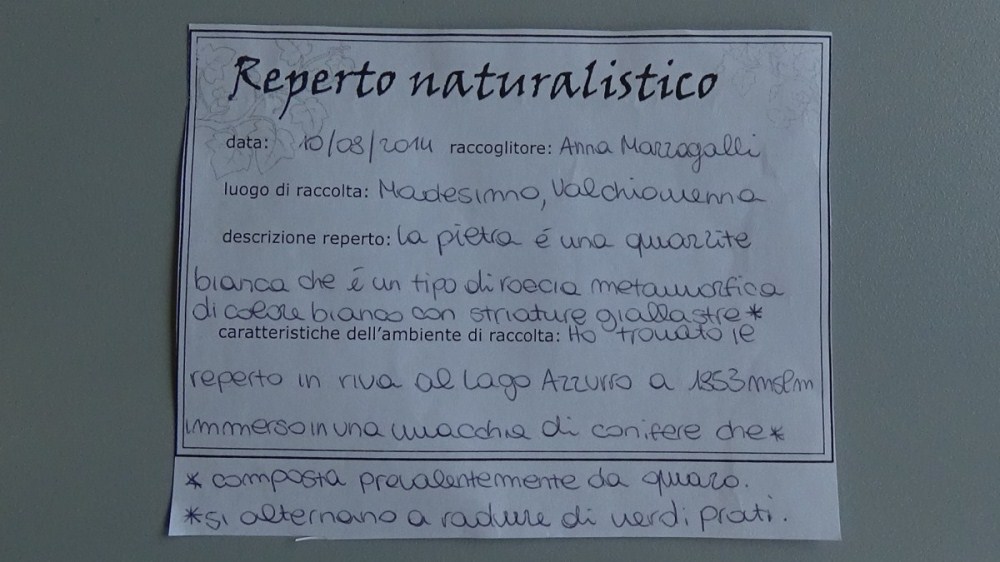 Reperto naturalistico
data: 10/08/2014 raccoglitore: Anna Mazzagalli
luogo di raccolta: Madesimno, Valchiavenna
descrizione reperto: la pietra é una quarzite
bianca che é un tipo di roccia metamorfica
di colore bianco con striature giallastre*
caratteristiche dell'ambiente di raccolta: Ho trovato il
reperto in riva al Lago Azzurro a 1853 mslm
immerso in una macchia di conifere che*
* composta prevalentemente da quarzo.
*si alternano a radure di verdi prati.